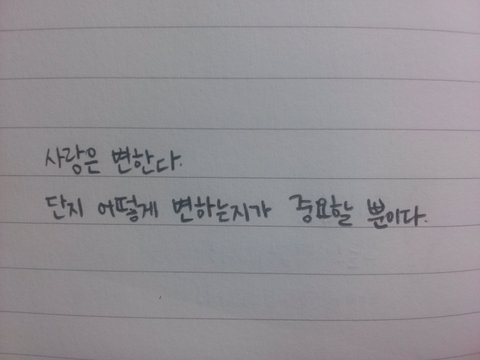 사랑은 변한다.
단지 어떻게 변하는지가 중요할 뿐이다.